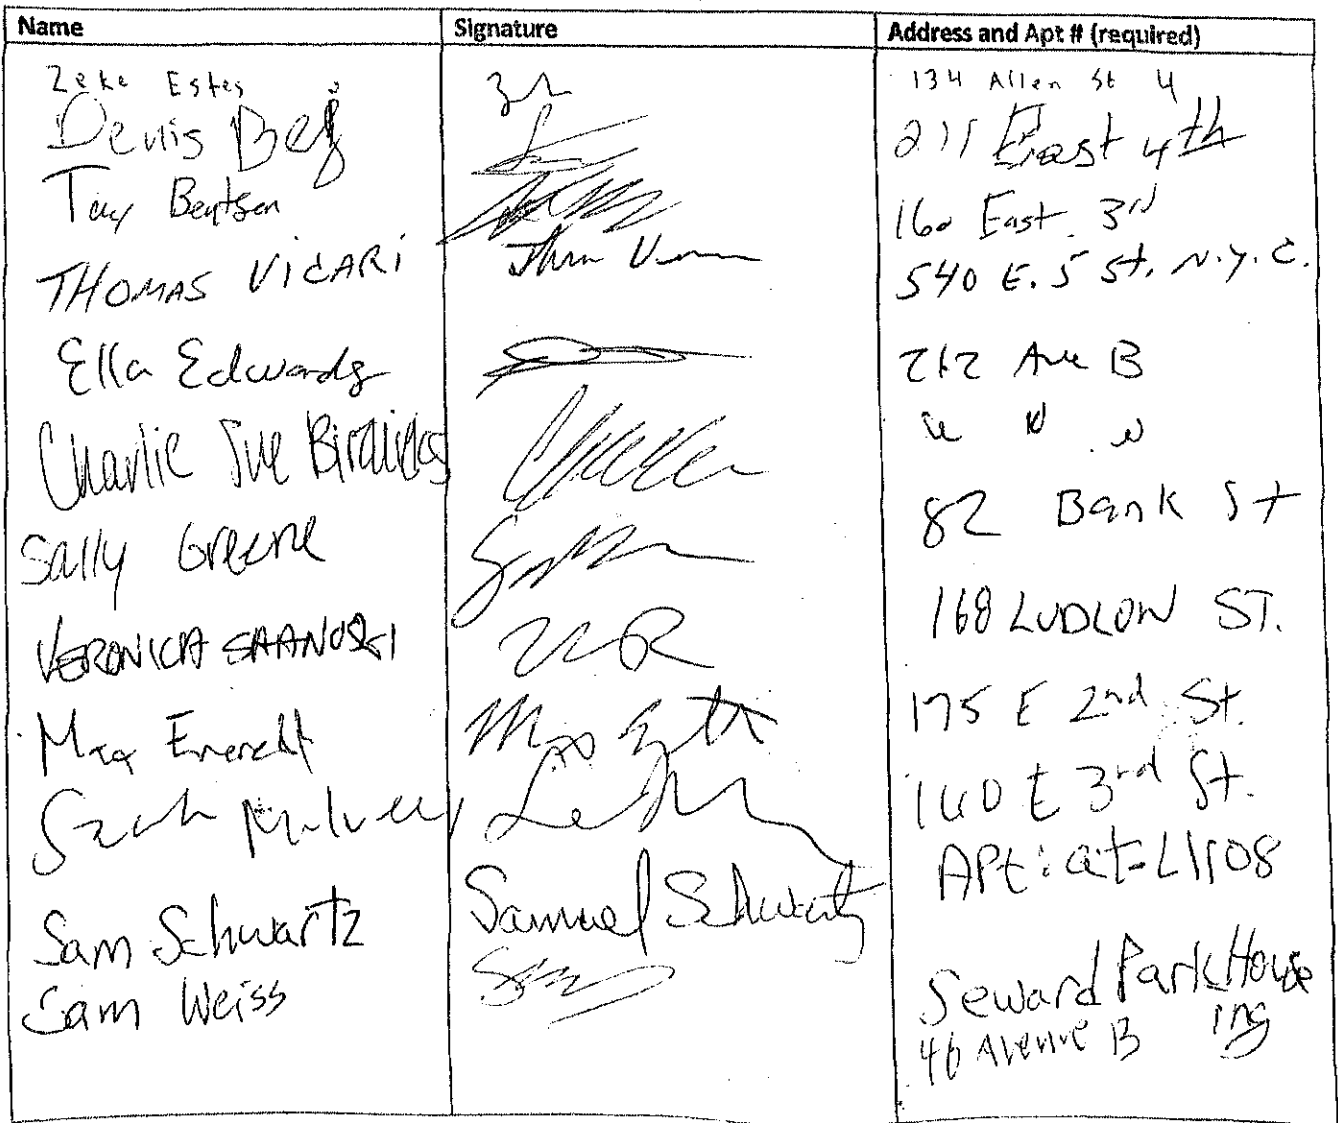 Name Signature Address and Apt # (required)
Zeke Estes 134 Allen St 4
Denis Bej 211 East 4th
Tay Bentsen 160 East 3rd
THOMAS VICARI 540 E. 5 St. N.Y.C.
Ella Edwards 262 Ave B
Charlie Sue " " "
Sally Greene 82 Bank St
VERONICA 168 LUDLOW ST.
Max Everett Max 175 E 2nd St.
Sarah Mulvey 160 E 3rd St.
Apt:
Sam Schwartz Samuel Schwartz
Sam Weiss Seward Park Hous
ing
46 Avenue B